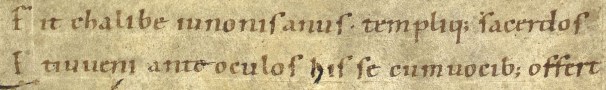 F it chalibe iunonis anus· templiq; sacerdos
E t iuueni ante oculos his se cum uocib; offert